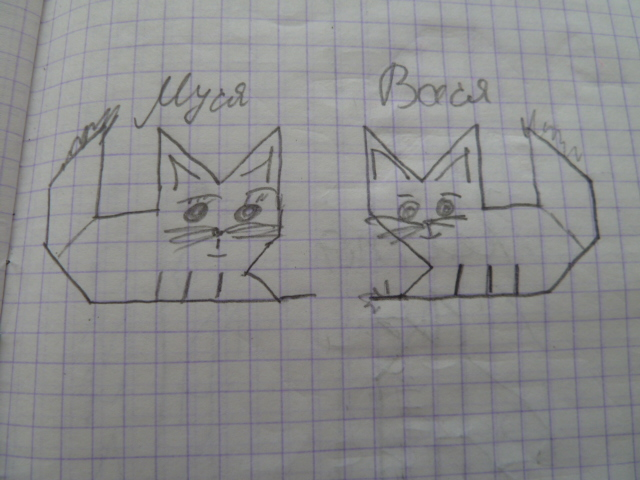 Муся Вася